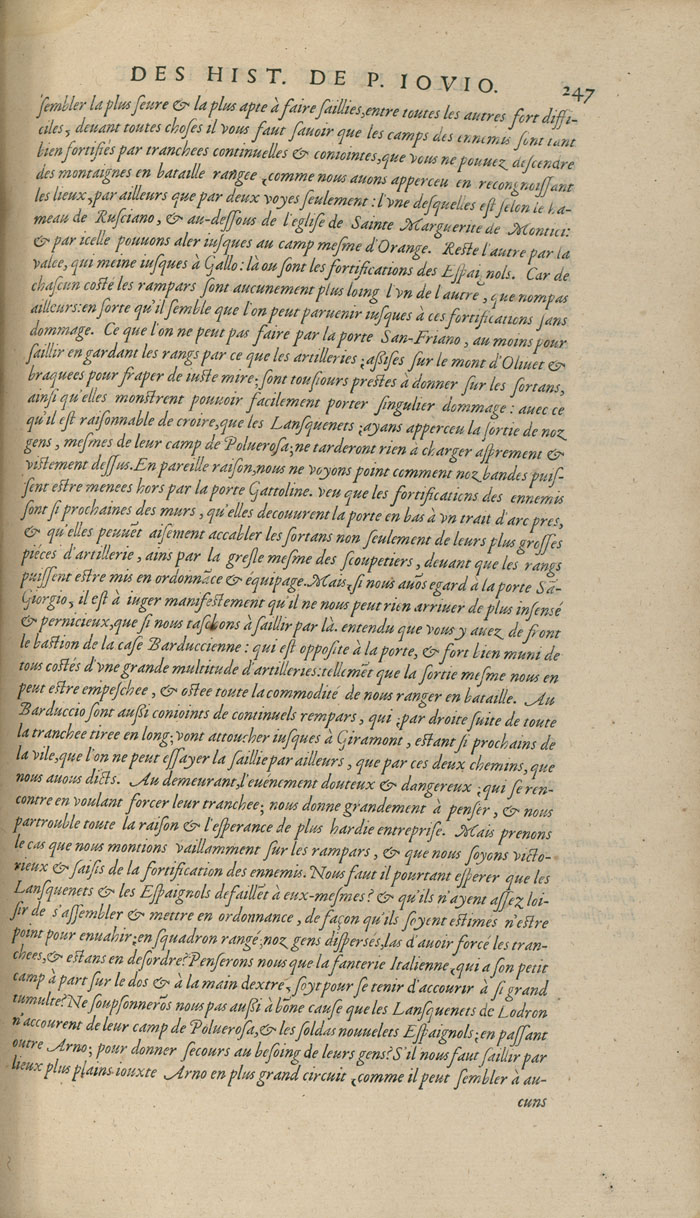 DES HIST. DE P. IOVIO. 247
sembler la plus seure & la plus apte à faire saillies, entre toutes les autres fort diffi-
ciles, deuant toutes choses il vous faut sauoir que les camps des ennemis sont tant
bien fortifiés par tranchees continuelles & contointes, que vous ne pouuez descendre
des montaignes en bataille rangee, comme nous auons apperceu en recongnoissant
les lieux, par ailleurs que par deux voyes seulement: l'vne desquelles est selon le ha-
meau de Rusciano, & au-dessous de l'eglise de Sainte Marguerite de Montici:
& par icelle pouuons aler iusques au camp mesme d'Orange. Reste l'autre par la
valee, qui meine iusques à Gallo: là ou sont les fortifications des Espaignols. Car de
chascun costé les rampars sont aucunement plus loing l'vn de l'autre, que nompas
ailleurs: en sorte qu'il semble que l'on peut paruenir iusques à ces fortifications sans
dommage. Ce que l'on ne peut pas faire par la porte San-Friano, au moins pour
saillir en gardant les rangs par ce que les artilleries, assises sur le mont d'Oliuet &
braquees pour fraper de iuste mire, sont tousiours prestes à donner sur les sortans,
ainsi qu'elles monstrent pouuoir facilement porter singulier dommage: auec ce
qu'il est raisonnable de croire, que les Lansquenets, ayans apperceu la sortie de noz
gens, mesmes de leur camp de Poluerosa, ne tarderont rien à charger asprement &
vistement dessus. En pareille raison, nous ne voyons point comment noz bandes puis-
sent estre menees hors par la porte Gattoline. veu que les fortifications des ennemis
sont si prochaines des murs, qu'elles decouurent la porte en bas à vn trait d'arc pres,
& qu'elles peuuēt aisement accabler les sortans non seulement de leurs plus grosses
piéces d'artillerie, ains par la gresle mesme des scoupetiers, deuant que les rangs
puissent estre mis en ordonnāce & équipage. Mais, si nous auōs egard à la porte Sā-
Giorgio, il est à iuger manifestement qu'il ne nous peut rien arriuer de plus insensé
& pernicieux, que si nous taschons à saillir par là. entendu que vous y auez de front
le bastion de la case Barduccienne: qui est opposite à la porte, & fort bien muni de
tous costés d'vne grande multitude d'artilleries: tellemēt que la sortie mesme nous en
peut estre empeschee, & ostee toute la commodité de nous ranger en bataille. Au
Barduccio sont aussi conioints de continuels rempars, qui, par droite suite de toute
la tranchee tiree en long, vont attoucher iusques à Giramont, estant si prochains de
la vile, que l'on ne peut essayer la saillie par ailleurs, que par ces deux chemins, que
nous auous dicts. Au demeurant, l'euénement douteux & dangereux, qui se ren-
contre en voulant forcer leur tranchee, nous donne grandement à penser, & nous
partrouble toute la raison & l'esperance de plus hardie entreprise. Mais prenons
le cas que nous montions vaillamment sur les rampars, & que nous soyons victo-
rieux & saisis de la fortification des ennemis. Nous faut il pourtant esperer que les
Lansquenets & les Espaignols defaillēt à eux-mesmes? & qu'ils n'ayent assez loi-
sir de s'assembler & mettre en ordonnance, de façon qu'ils soyent estimes n'estre
point pour enuahir, en squadron rangé, noz gens dispersés, las d'auoir forcé les tran-
chees, & estans en desordre? Penserons nous que la fanterie Italienne, qui a son petit
camp à part sur le dos & à la main dextre, soyt pour se tenir d'accourir à si grand
tumulte? Ne soupsonnerōs nous pas aussi à bōne cause que les Lansquenets de Lodron
n'accourent de leur camp de Poluerosa, & les soldas nouuelets Espaignols, en passant
outre Arno, pour donner secours au besoing de leurs gens? S'il nous faut saillir par
lieux plus plains iouxte Arno en plus grand circuit, comme il peut sembler à au-
cuns